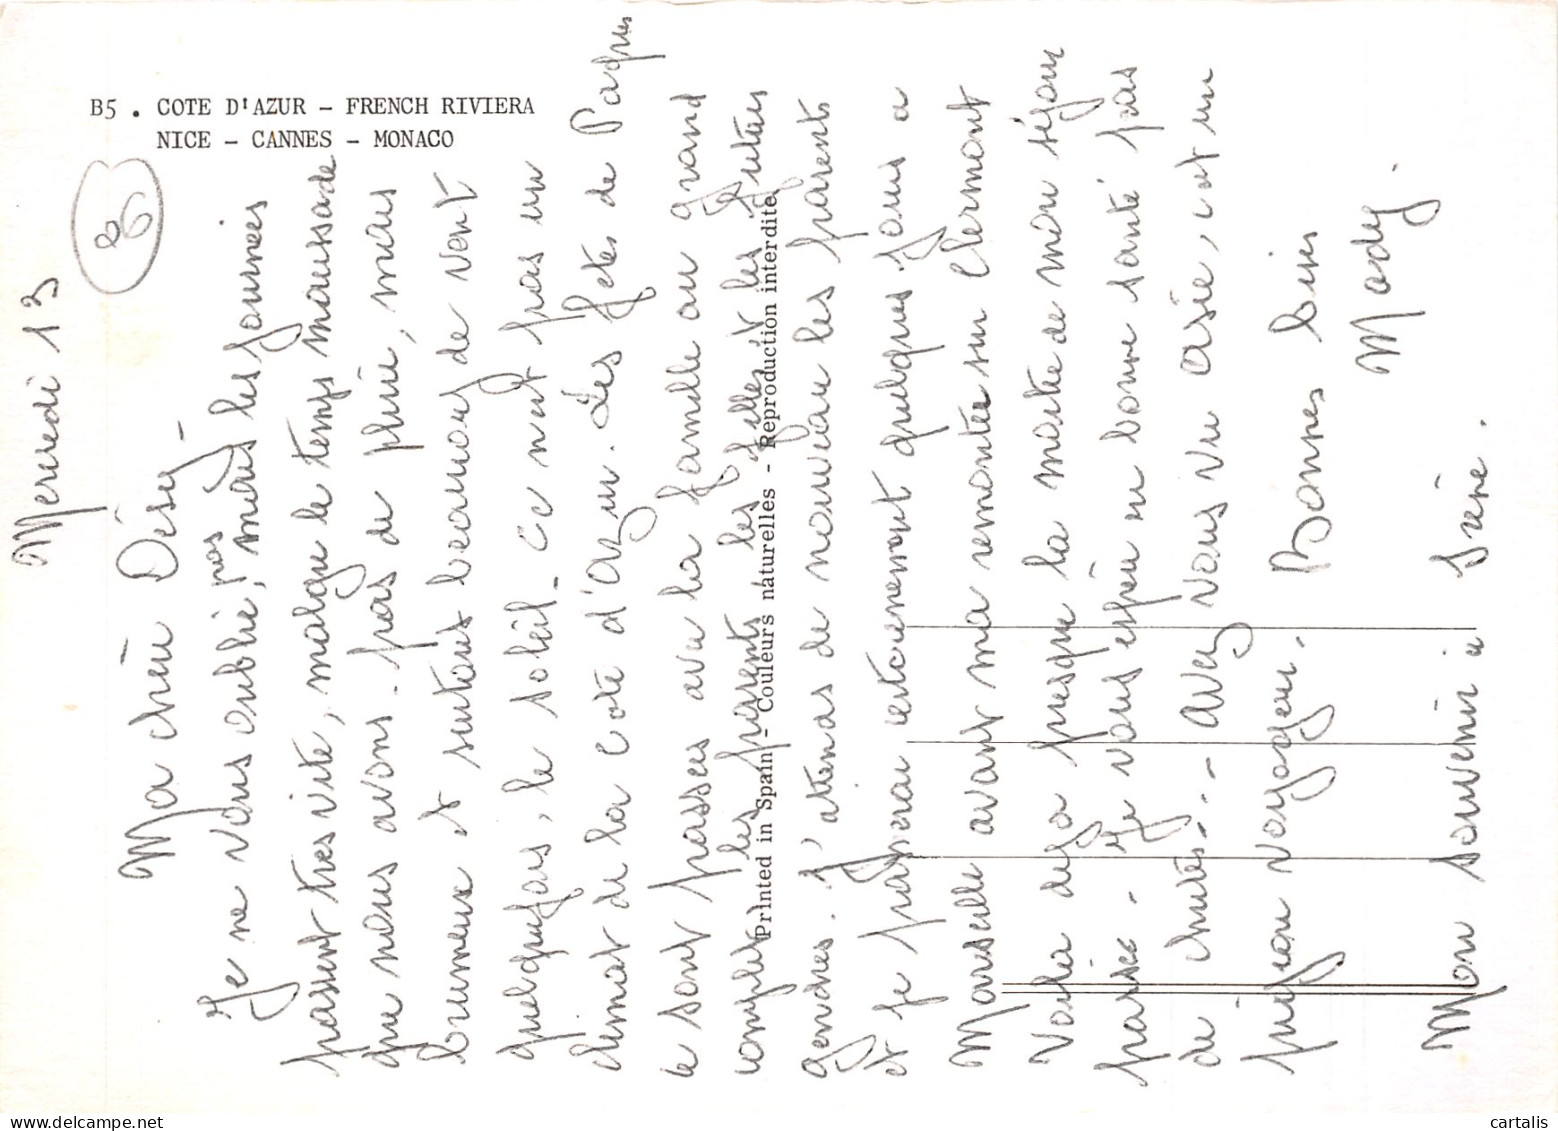 B5 . COTE D'AZUR - FRENCH RIVIERA
NICE - CANNES - MONACO
86
Mercredi 13
Ma chère Désy -
Je ne vous oublie pas, mais les journées
passent tres vite, malgre le temps maussade
que nous avons. pas de pluie, mais
brumeux et surtout beaucoup de vent
quelquefois, le soleil - Ce n'est pas un
climat de la Cote d'Azur. Les fetes de Paques
se sont passees avec la famille au grand
complet les parents les filles et les futurs
gendres. J'attends de nouveau les parents
et je passerai certainement quelques jours a
Marseille avant ma remontée sur Clermont
Voila deja presque la moitie de mon séjour
passée - Je vous espère en bonne santé pas
de chutes - - Avez vous vu Asie, c'est un
pigeon voyageur. Bonnes bises
Mady.
Mon souvenir à Irène.
Printed in Spain - Couleurs naturelles - Reproduction interdite
cartalis